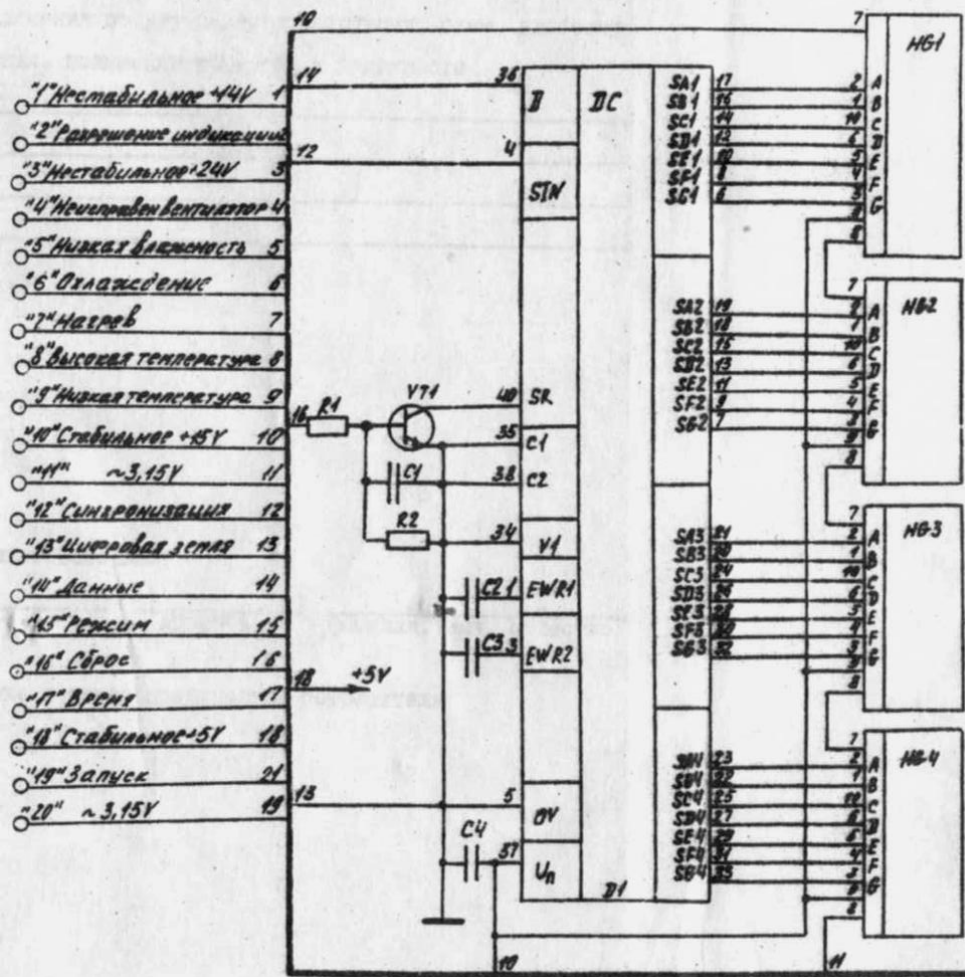 "1" Нестабильное +14V 1
"2" Разрешение индикации 2
"3" Нестабильное +24V 3
"4" Неисправен вентилятор 4
"5" Низкая влажность 5
"6" Охлаждение 6
"7" Нагрев 7
"8" Высокая температура 8
"9" Низкая температура 9
"10" Стабильное +15V 10
"11" ~3,15V 11
"12" Синхронизация 12
"13" Цифровая земля 13
"14" Данные 14
"15" Режим 15
"16" Сброс 16
"17" Время 17
"18" Стабильное +5V 18
"19" Запуск 21
"20" ~3,15V 19
19
14
12
16 R1
VT1
C1
R2
C2
C3
18 +5V
13
C4
10
11
36 D
DC
4
SIN
40 SR
35 C1
38 C2
34
V1
1 EWR1
3 EWR2
5
0V
37
Uп
D1
SA1 17
SB1 16
SC1 14
SD1 12
SE1 10
SF1 8
SG1 6
SA2 19
SB2 18
SC2 15
SD2 13
SE2 11
SF2 9
SG2 7
SA3 21
SB3 20
SC3 24
SD3
SE3
SF3
SG3 32
SA4 23
SB4 22
SC4 25
SD4 27
SE4 29
SF4 31
SG4 33
7 HG1
2 A
1 B
C
6 D
5 E
4 F
3 G
9
8
7 HG2
2 A
1 B
10 C
6 D
5 E
4 F
3 G
9
8
7 HG3
2 A
1 B
10 C
6 D
5 E
4 F
3 G
9
8
7 HG4
2 A
1 B
C
6 D
5 E
4 F
3 G
9
8